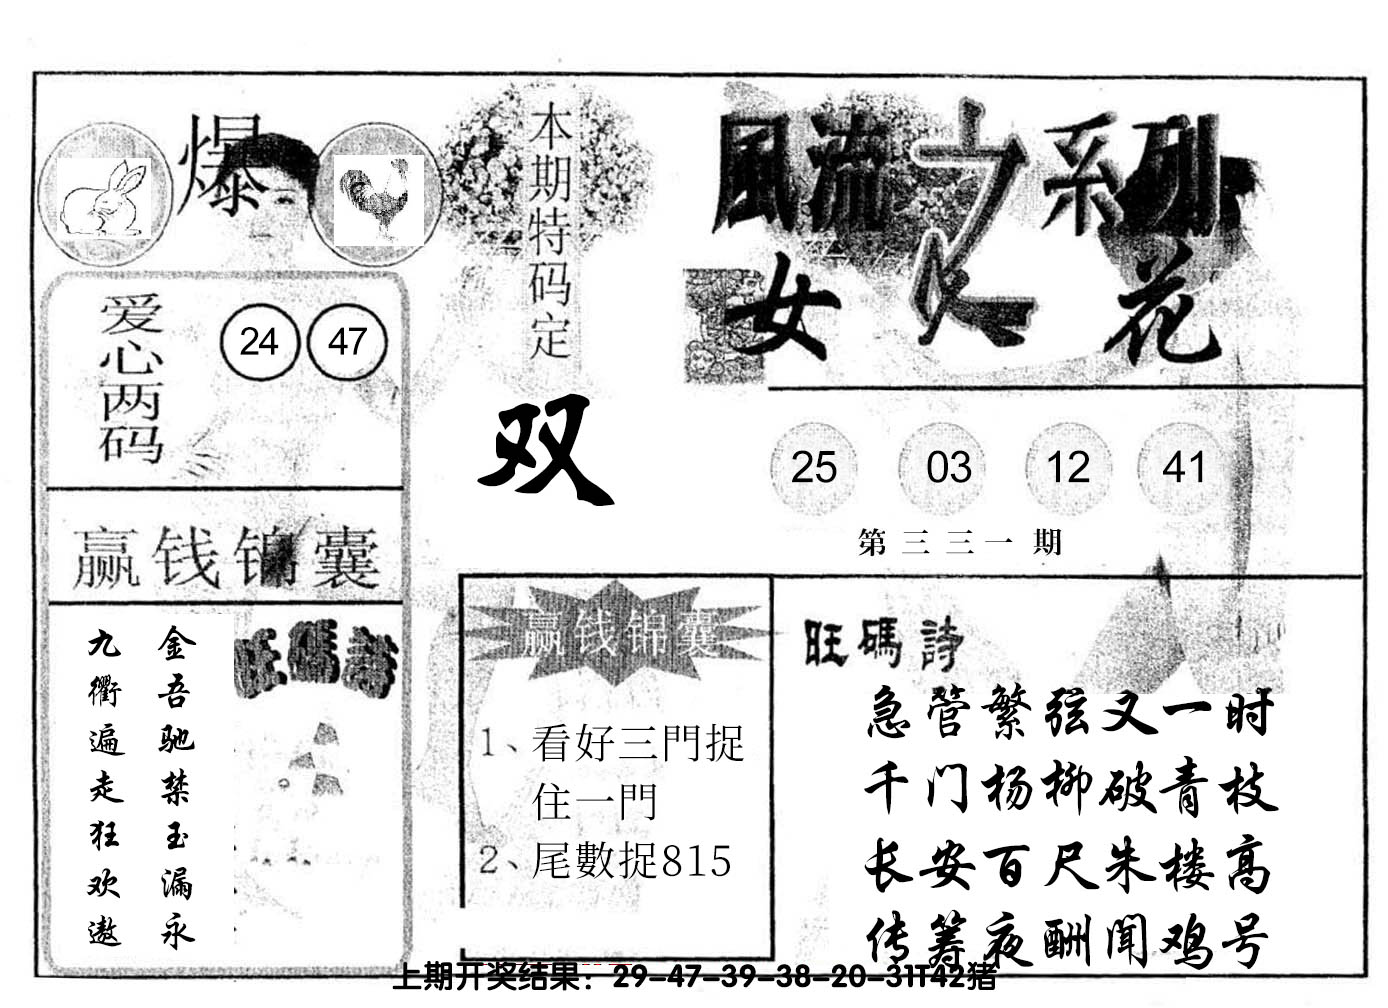 爆
本期特码定
双
風流之系列
女人花
爱心两码
24 47
25 03 12 41
第三三一期
赢钱锦囊
金吾驰禁玉漏永
九衢遍走狂欢遨
旺碼詩
赢钱锦囊
1、看好三門捉
住一門
2、尾數捉815
旺碼詩
急管繁弦又一时
千门杨柳破青枝
长安百尺朱楼高
传筹夜酬闻鸡号
上期开奖结果：29-47-39-38-20-31T42猪